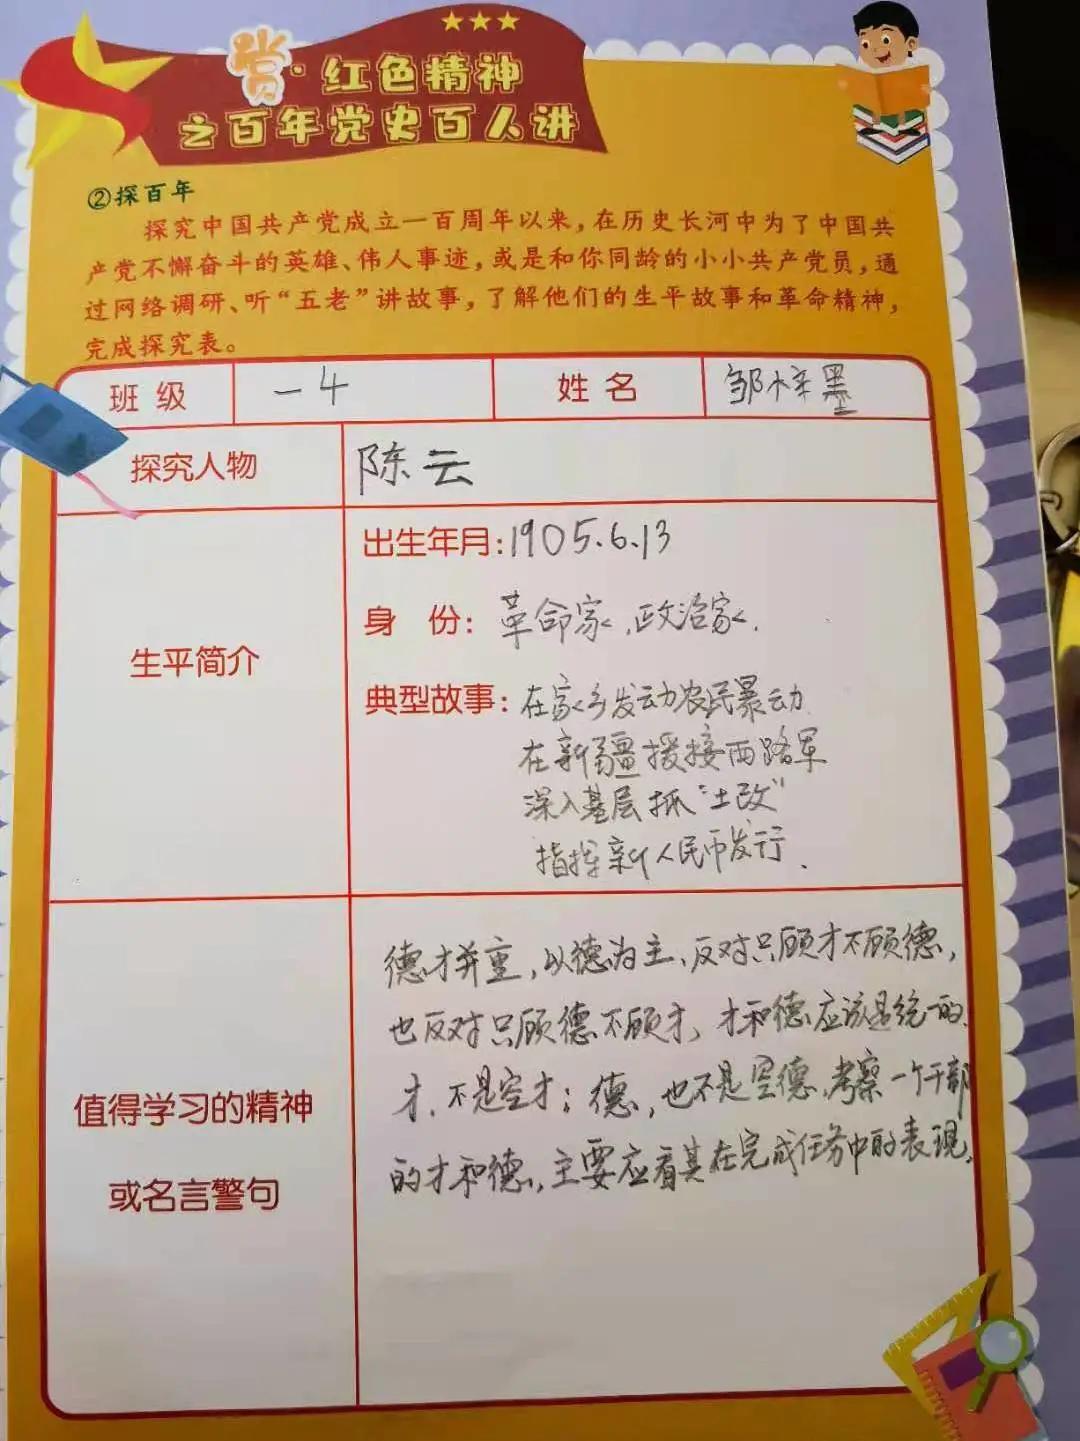 赏·红色精神
之百年党史百人讲
②探百年
探究中国共产党成立一百周年以来，在历史长河中为了中国共
产党不懈奋斗的英雄、伟人事迹，或是和你同龄的小小共产党员，通
过网络调研、听“五老”讲故事，了解他们的生平故事和革命精神，
完成探究表。
班级 一4 姓名 邹梓墨
探究人物 陈云
生平简介
出生年月：1905.6.13
身 份：革命家、政治家.
典型故事：在家乡发动农民暴动
在新疆援接西路军
深入基层抓“土改”
指挥新人民币发行.
值得学习的精神
或名言警句
德才并重，以德为主、反对只顾才不顾德，
也反对只顾德不顾才，才和德应该是统一的、
才，不是空才；德，也不是空德，考察一个干部
的才和德，主要应看其在完成任务中的表现，